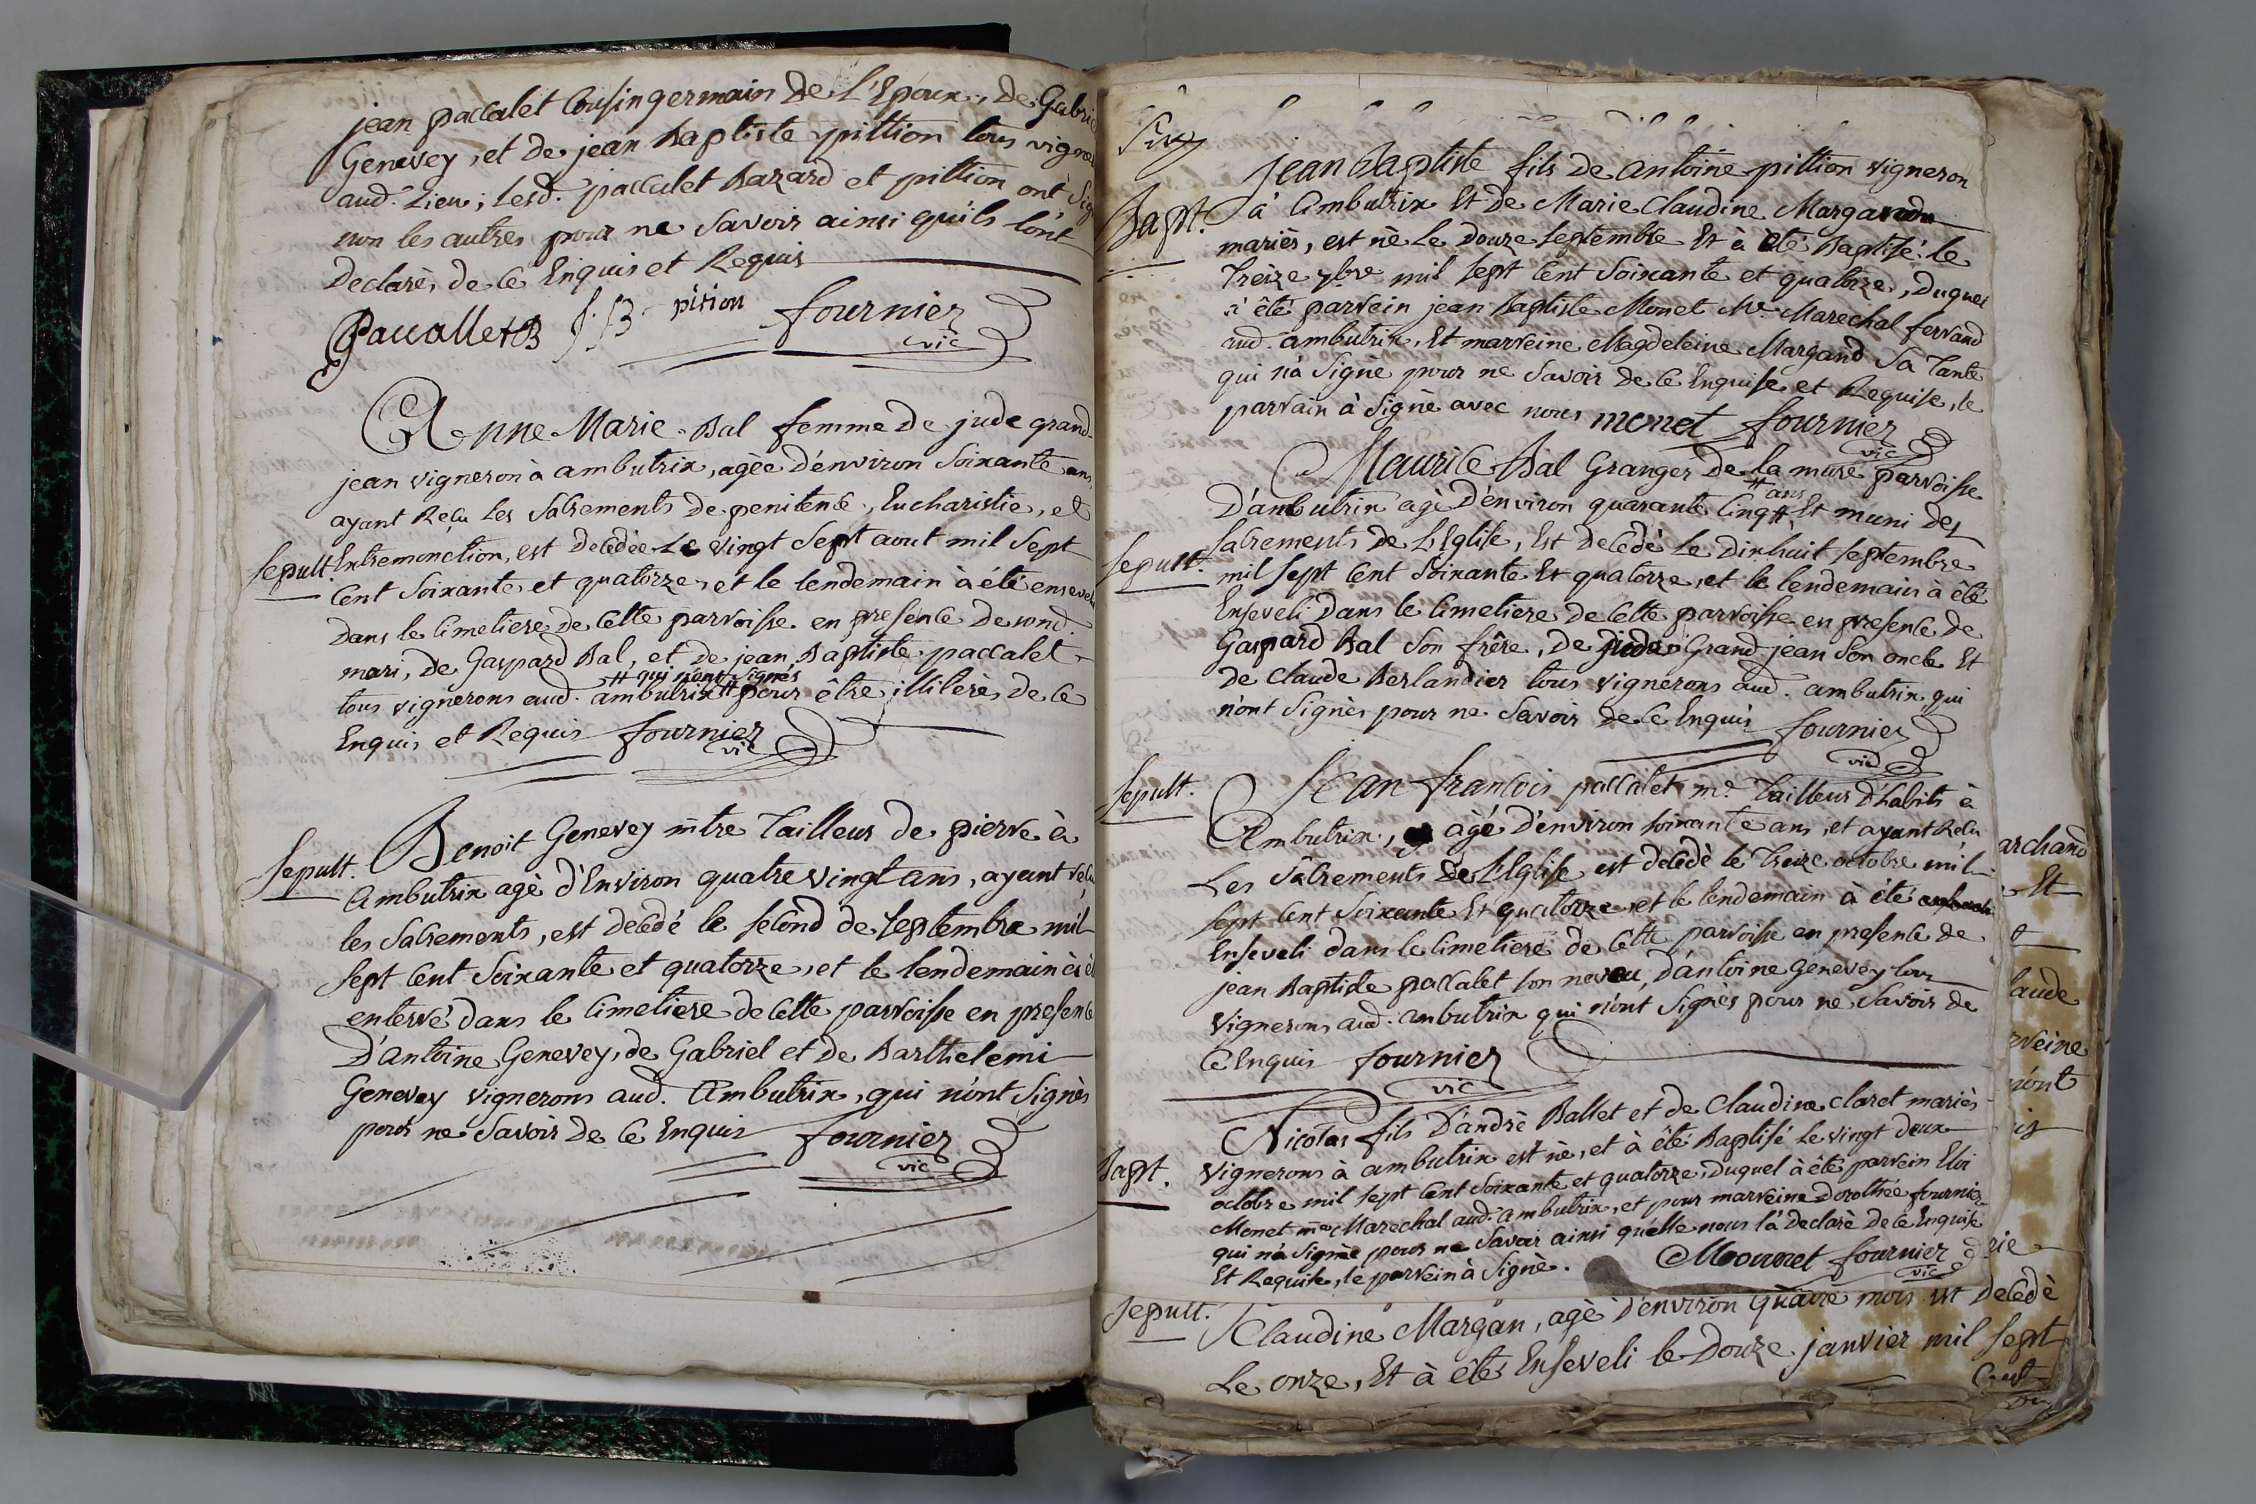 jean paccalet Cousin germain de L'Epoux, de Gabri
Genevey, et de jean Baptiste pittion tous vigne
aud. Lieu; Lesd. paccalet Bazard et pittion ont sig
non les autres pour ne Savoir ainsi quils lont
declarè, de ce Enquis et Requis
Paccallet J·B· pition fournier
vic
Anne Marie Bal femme de jude grand
jean vigneron à ambutrix, agèe d'environ Soixante ans,
ayant Reçu Les Sacrements de penitence, Eucharistie, et
Sepult. Extremonction, est decedèe Le vingt Sept aout mil Sept
Cent Soixante et quatorze, et le lendemain à été enseve
dans le Cimetiere de Cette parroisse en presence de sond.
mari, de Gaspard Bal, et de jean Baptiste paccalet
# qui n'ont signès
tous vignerons aud. ambutrix # pour être illiterès, de Ce
Enquis et Requis fournier
vic
Benoit Genevey mtre Tailleur de pierre à
Sepult.
Ambutrix agè d'Environ quatre vingt ans, ayant reçu
les Sacrements, est decedé le second de Septembre mil
Sept Cent Soixante et quatorze, et le lendemain à é
enterré dans le Cimetiere de Cette parroisse en presence
D'antoine Genevey, de Gabriel et de Barthelemi
Genevey vignerons aud. Ambutrix, qui n'ont Signès
pour ne Savoir de Ce Enquis fournier
vic
Six
Jean Baptiste fils de Antoine pittion vigneron
Bapt. à Ambutrix Et de Marie Claudine Margand
mariès, est nè Le Douze Septembre Et à été Baptisé le
Treize 7bre mil Sept Cent Soixante et quatorze, Duquel
à été parrein jean Baptiste Monet Me. Marechal ferrand
aud. ambutrix, Et marreine Magdeleine Margand Sa Tante
qui n'a Signè pour ne Savoir de Ce Enquise et Requise, le
parrain à Signè avec nous monet fournier
vic
Maurice Bal Granger de la mure parroisse
# ans
D'ambutrix agè D'environ quarante Cinq # Et muni des
Sepult. Sacrements de L'Eglise, Est decedè Le Dixhuit Septembre
mil Sept Cent Soixante Et quatorze, et le lendemain à été
Enseveli Dans le Cimetiere de Cette parroisse en presence de
Gaspard Bal Son frêre, De jude Grand jean Son oncle Et
de Claude Berlandier tous vignerons aud. ambutrix, qui
n'ont Signès pour ne Savoir de Ce Enquis fournier
vic
Sepult. Jean francois paccalet me. Tailleur D'habits à
Ambutrix, agé D'environ soixante ans, et ayant Reçu
Les Sâcrements de L'Eglise est decedè le Treize octobre mil
Sept Cent Soixante Et quatorze, et le lendemain à été
Enseveli dans le Cimetiere de Cette parroisse en presence de
jean Baptiste paccalet son neveu, D'antoine Genevey tous
Vignerons aud. ambutrix qui n'ont Signès pour ne Savoir de
Ce Enquis fournier
vic
Nicolas fils D'andrè Ballet et de Claudine Claret mariès
Bapt. Vignerons à ambutrix est nè, et à été Baptisé Le vingt deux
octobre mil Sept Cent Soixante et quatorze, Duquel à été parrein Eloi
Monet me Marechal aud. ambutrix, et pour marreine Dorothée fournier
qui n'a Signèe pour ne Savoir ainsi qu'elle nous l'a Declarè de Ce Enquise
Et Requise, le parrein à Signè. Mounet fournier
vic
Sepult. Claudine Margan, agè d'environ quatre mois est Decedè
Le onze, Et à été Enseveli le Douze janvier mil Sept
Cent
archand
Et
laude
rreine
n'ont
is
rie